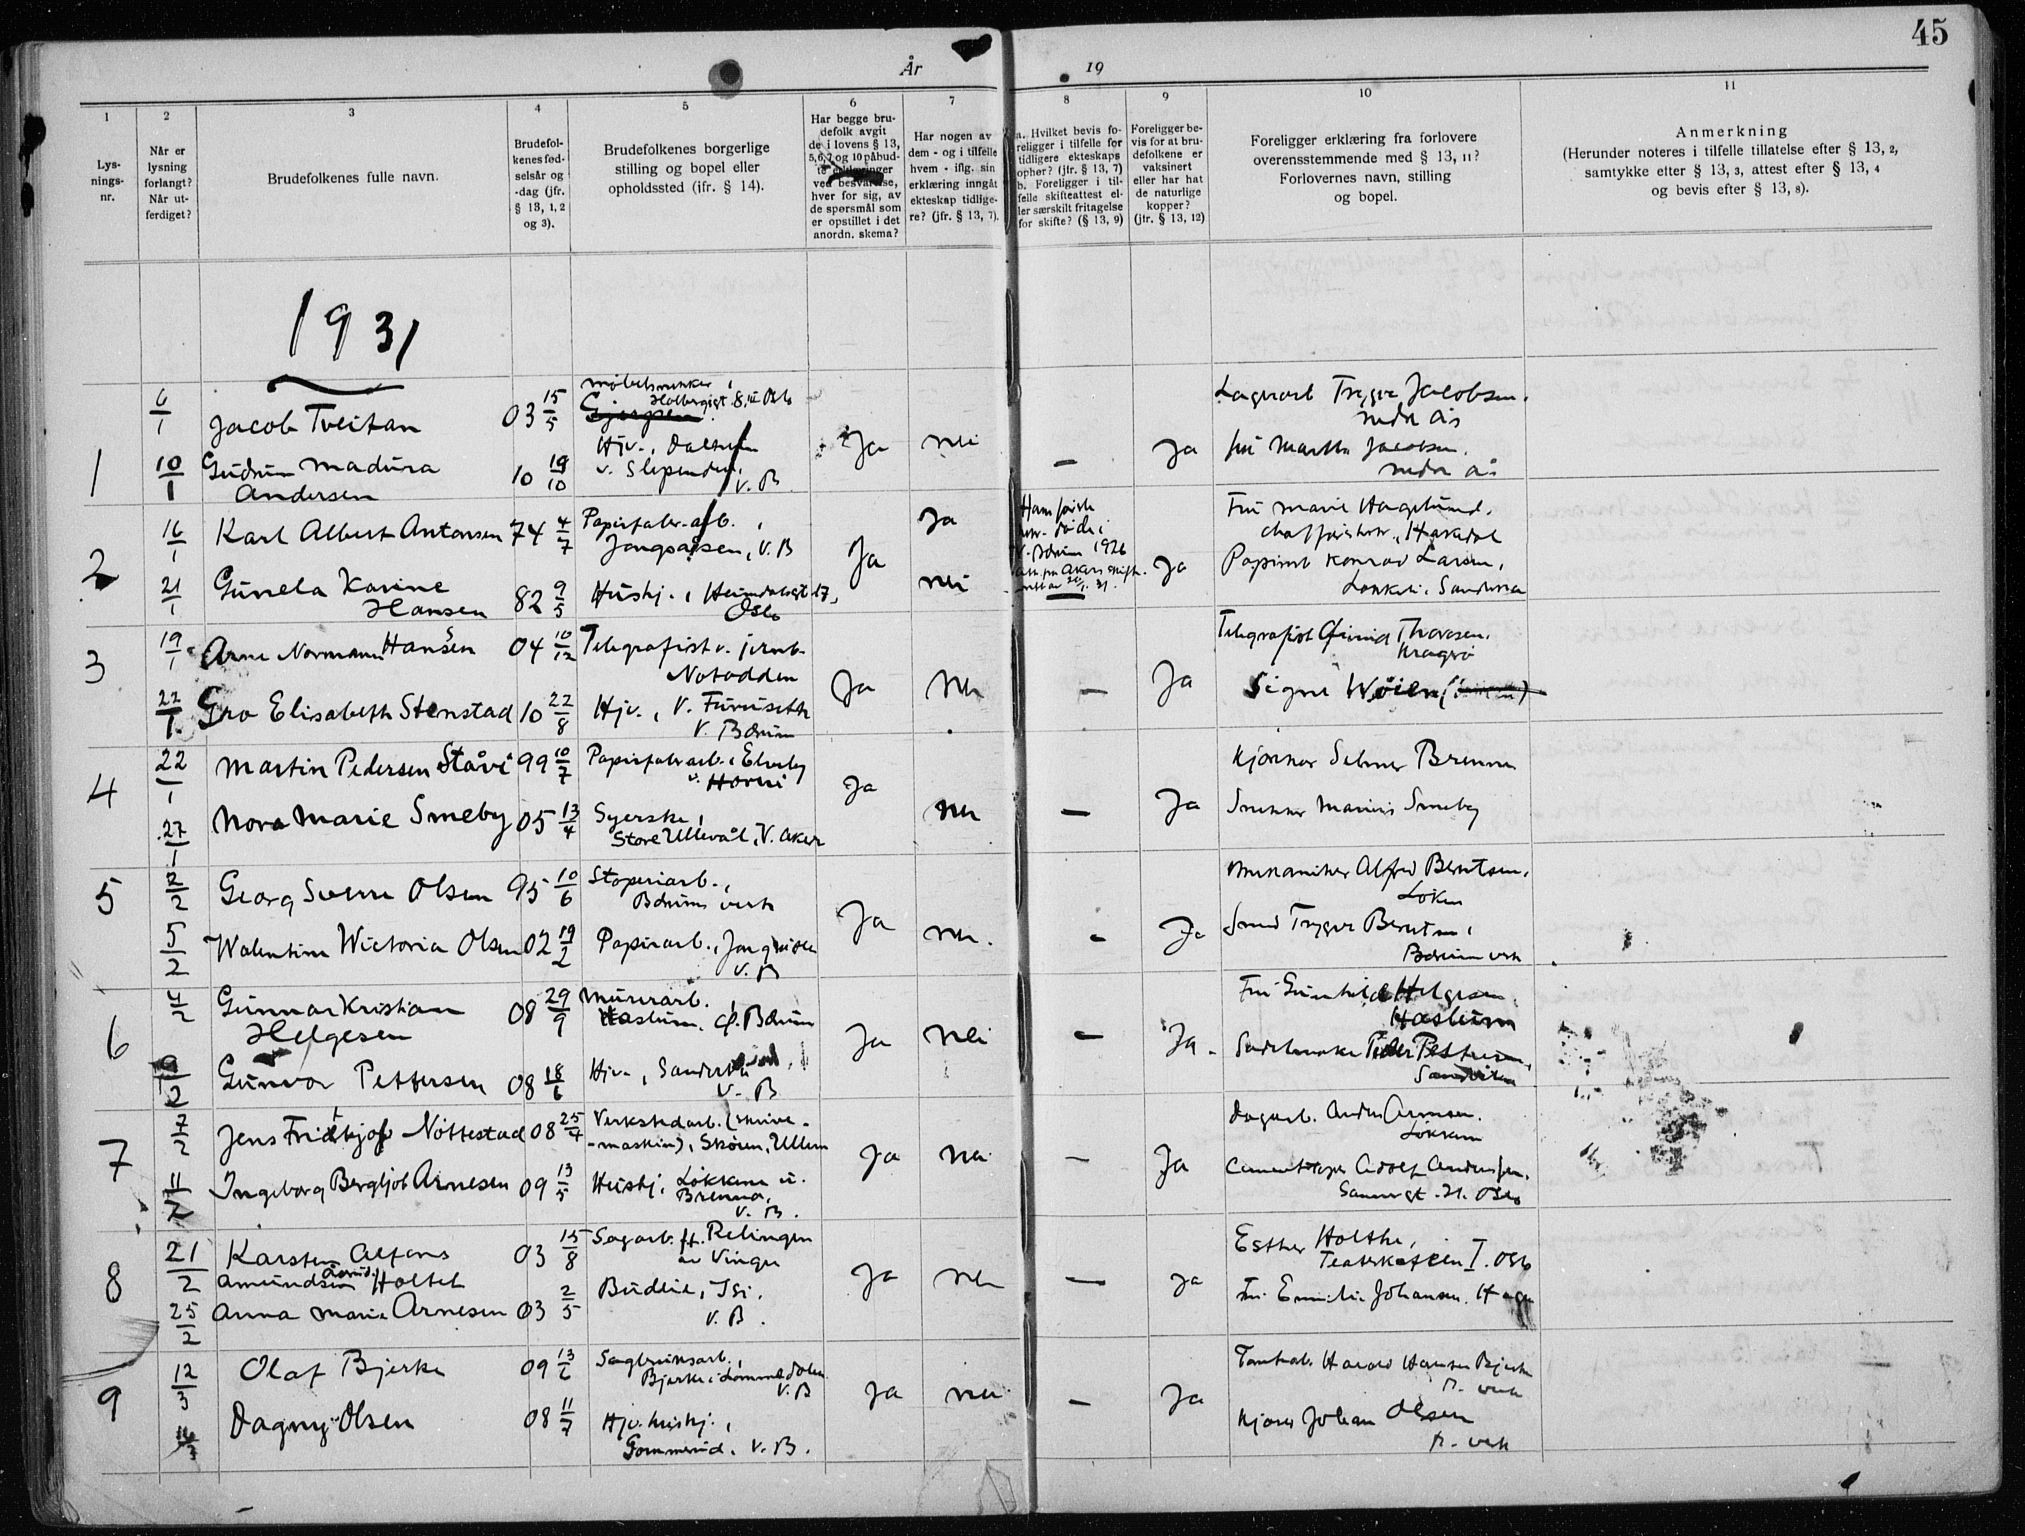 45
År 19
1
2
3
4
5
6
7
8
9
10
11
Lys-
nings-
nr.
Når er
lysning
forlangt?
Når ut-
ferdiget?
Brudefolkenes fulle navn.
Brudefol-
kenes fød-
selsår og
-dag (jfr.
§ 13, 1, 2
og 3).
Brudefolkenes borgerlige
stilling og bopel eller
opholdssted (ifr. § 14).
Har begge bru-
defolk avgit
de i lovens § 13,
5, 6, 7 og 10 påbud-
te erklæringer
ved besvarelse,
hver for sig, av
de spørsmål som
er opstillet i det
anordn. skema?
Har nogen av
dem - og i tilfelle
hvem - iflg. sin
erklæring inngåt
ekteskap tidlige-
re? (jfr. § 13, 7).
a. Hvilket bevis fo-
religger i tilfelle for
tidligere ekteskaps
ophør? (jfr. § 13, 7)
b. Foreligger i til-
felle skifteattest el-
ler særskilt fritagelse
for skifte? (§ 13, 9)
Foreligger be-
vis for at bru-
defolkene er
vaksinert
eller har hat
de naturlige
kopper?
(jfr. § 13, 12)
Foreligger erklæring fra forlovere
overensstemmende med § 13, 11?
Forlovernes navn, stilling
og bopel.
Anmerkning
(Herunder noteres i tilfelle tillatelse efter § 13, 2,
samtykke etter § 13, 3, attest efter § 13, 4
og bevis efter § 13, 8).
1931
1
6/1
Jacob Tveitan
03 15/5
møbelsnekker,
Holbergsgt. 8, III Oslo
Gjerpen
10/1
Gudrun Madura
Andersen
10 19/10
Hjv.,
v. Slependen,
V. B
Ja
nei
—
Ja
Lagerarb Trygve Jacobsen,
nedre Ås
fru Martha Jacobsen,
nedre Ås
2
16/1
Karl Albert Antonsen
74 4/7
Papirfabr. arb.,
Jongsåsen, V. B
21/1
Gunela Karine
Hansen
82 9/5
Hushj., Heimdalsgt 17,
Oslo
Ja
Ja
nei
Hans første
hustr. døde i
V. Bærum 1926
Ja
Fru Marie Hagelund,
Papirarb Konrad Larsen,
3
19/1
Arne Normann Hansen
04 10/12
Telegrafist v. jernb.
Notodden
22/1
Gro Elisabeth Stenstad
10 22/8
Hjv., V. Furuseth
V. Bærum
Ja
Nei
—
Ja
Telegrafist Øivind Thoresen,
Kragerø
Signe Wøien
4
22/1
Martin Pedersen Ståvi
99 10/7
Papirfabr arb.,
27/1
Nora Marie Smeby
05 13/4
Syerske,
Store Ullevål, V. Aker
Ja
nei
—
Ja
Kjører Selmer Brenna
Snekker Marius Smeby
5
2/2
Georg Sverre Olsen
95 10/6
Støperiarb.,
Bærums verk
5/2
Walentine Wictoria Olsen
02 19/2
Papirarb., Jongsåsen
V. B
Ja
nei.
—
Ja
Mekaniker Alfred Berntsen,
Løken
Smed Trygve Berntsen,
Bærums verk
6
4/2
Gunnar Kristian
Helgesen
08 29/9
Murerarb.,
Haslum, Ø. Bærum
9/2
Gunvor Pettersen
08 18/6
Hjv., Sandvika
V. B
Ja
nei
—
Ja.
Fru Gunhild Helgesen,
Haslum
Sadelmaker Peder Pettersen,
Sandviken
7
7/2
Jens Fridtjof Nöttestad
08 25/4
Verkstedarb. (skrive-
-maskin), Skøien, Ullern
11/2
Ingeborg Bergljot Arnesen
09 13/5
Hushj. Løkkene u.
Brenna,
V. B.
Ja
nei
—
Ja
Dagarb. Anders Arnesen.
Løkkene
Cementstøper Adolf Andersen,
8
21/2
Karsten Alfons
Amundsen Holtet
03 15/8
Sagarb. ft. Relingen
av Vinger
25/2
Anna Marie Arnesen
03 2/5
Budeie, Isi.
V. B.
Ja
nei
—
Ja
Esther Holthe,
Teaterkafeen I. Oslo
Fru Emilie Johansen. Haga
9
12/3
Olaf Bjerke
09 13/6
Sagbruksarb.,
Bjerke i Lommedalen
V. B
16/3
Dagny Olsen
08 11/7
Hjv. hushj.,
Gommerud, V. B.
Ja
nei
—
Ja
Tomtearb. Harald Hansen Bjerke
B. verk
Kjører Johan Olsen
B. verk